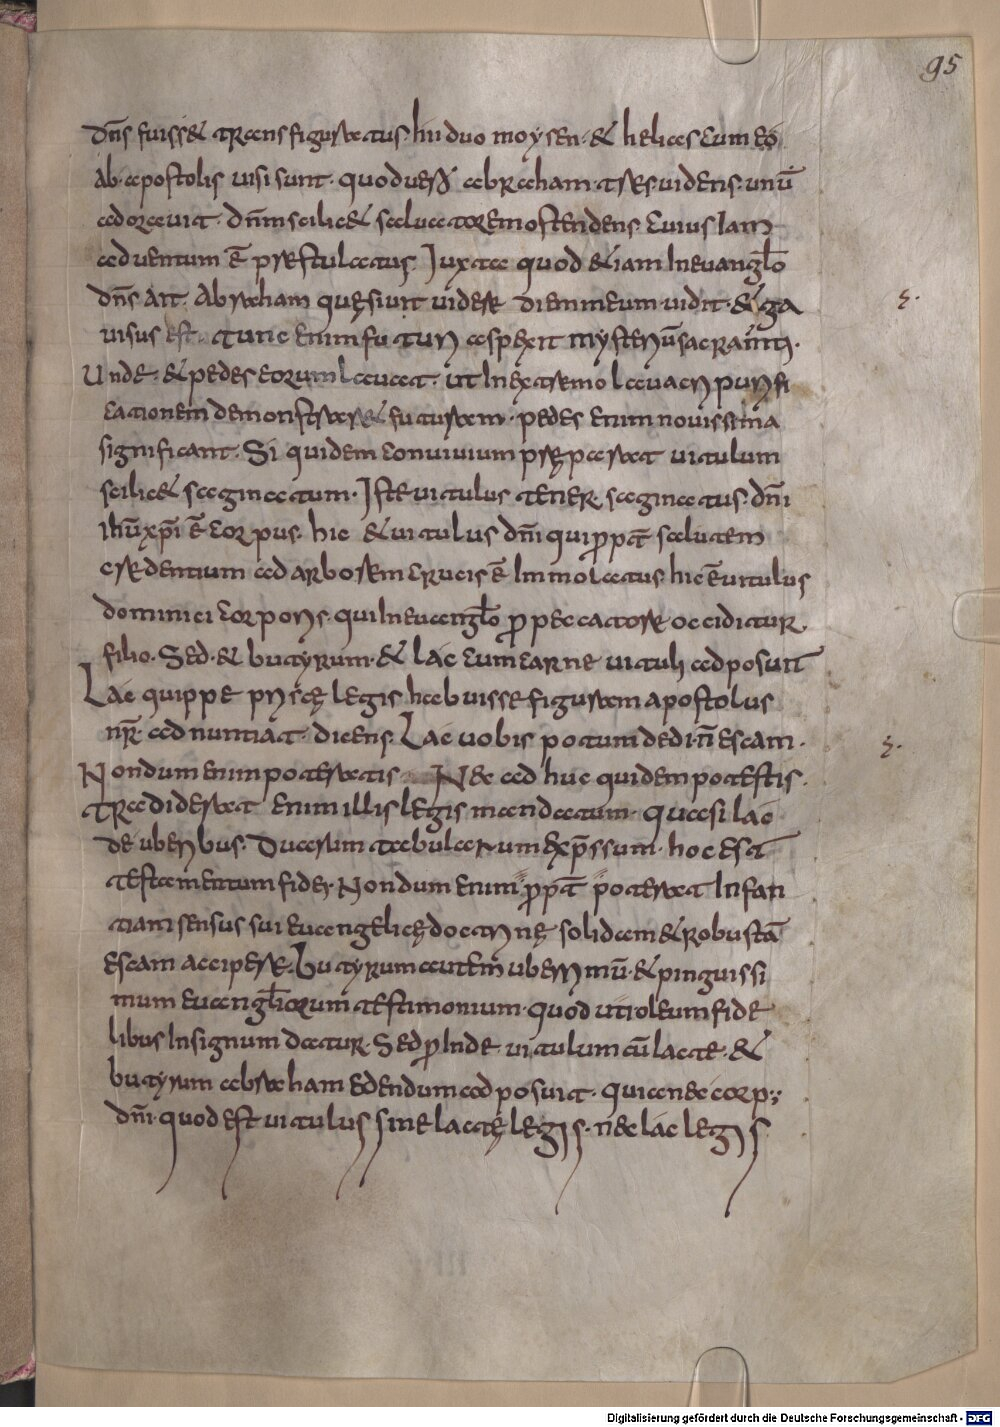 95
dn̄s fuiss& transfiguratus. hii duo moysen. & helias cum eo
Ab. apostolis uisi sunt. quod uero abraham. tres. uidens. unū
adorauit. dn̄m scilic& saluatorem ostendens. cuius Iam
aduentum ē praestulatus. Iuxta quod &iam In euangl̄o
dn̄s Ait. Abraham quęsiuit uidere diem meum. uidit. & ga
uisus est. tunc enim futuri aspexit mysteriū sacramti.
Unde. & pedes eorum lauat. ut In extremo lauacri purifi
cationem demonstrar& futuram. pedes enim nouissima
significant. Si quidem conuiuium pręparat uitulum
scilic& saginatum. Iste uitulus tener. saginatus. dn̄i
ihū xp̄i ē corpus. hic & uitulus dn̄i qui ꝓpt̄ salutem
credentium ad arborem crucis ē Immolatus. hic ē uitulus
dominici corporis. qui In euangl̄o ꝓ peccatore occiditur.
filio. Sed. & butyrum. & lac cum carne uituli adposuit
Lac quippe priscę legis habuisse figuram apostolus
nr̄. adnuntiat. dicens. Lac uobis potum dedi. n̄ escam.
Nondum enim poteratis Nec ad huc quidem potestis.
Tradiderat enim illis legis mandatum. quasi lac
de uberibus. Duarum tabularum exp̄ssum. hoc est
testamentum fidei. Nondum enim ꝓpt̄ poterat Infan
tiam sensus sui euangelicę doctrinę solidam & robustā
escam accipere. butyrum autem uberrimū. & pinguissi
mum euangl̄iorum testimonium. quod uti oleum fide
libus In signum datur. Sed ꝓInde. uitulum cū lacte. &
butyrum abraham edendum adposuit. quia nec corp;
dn̄i. quod est uitulus sine lacte legis. nec lac legis
Digitalisierung gefördert durch die Deutsche Forschungsgemeinschaft - DFG